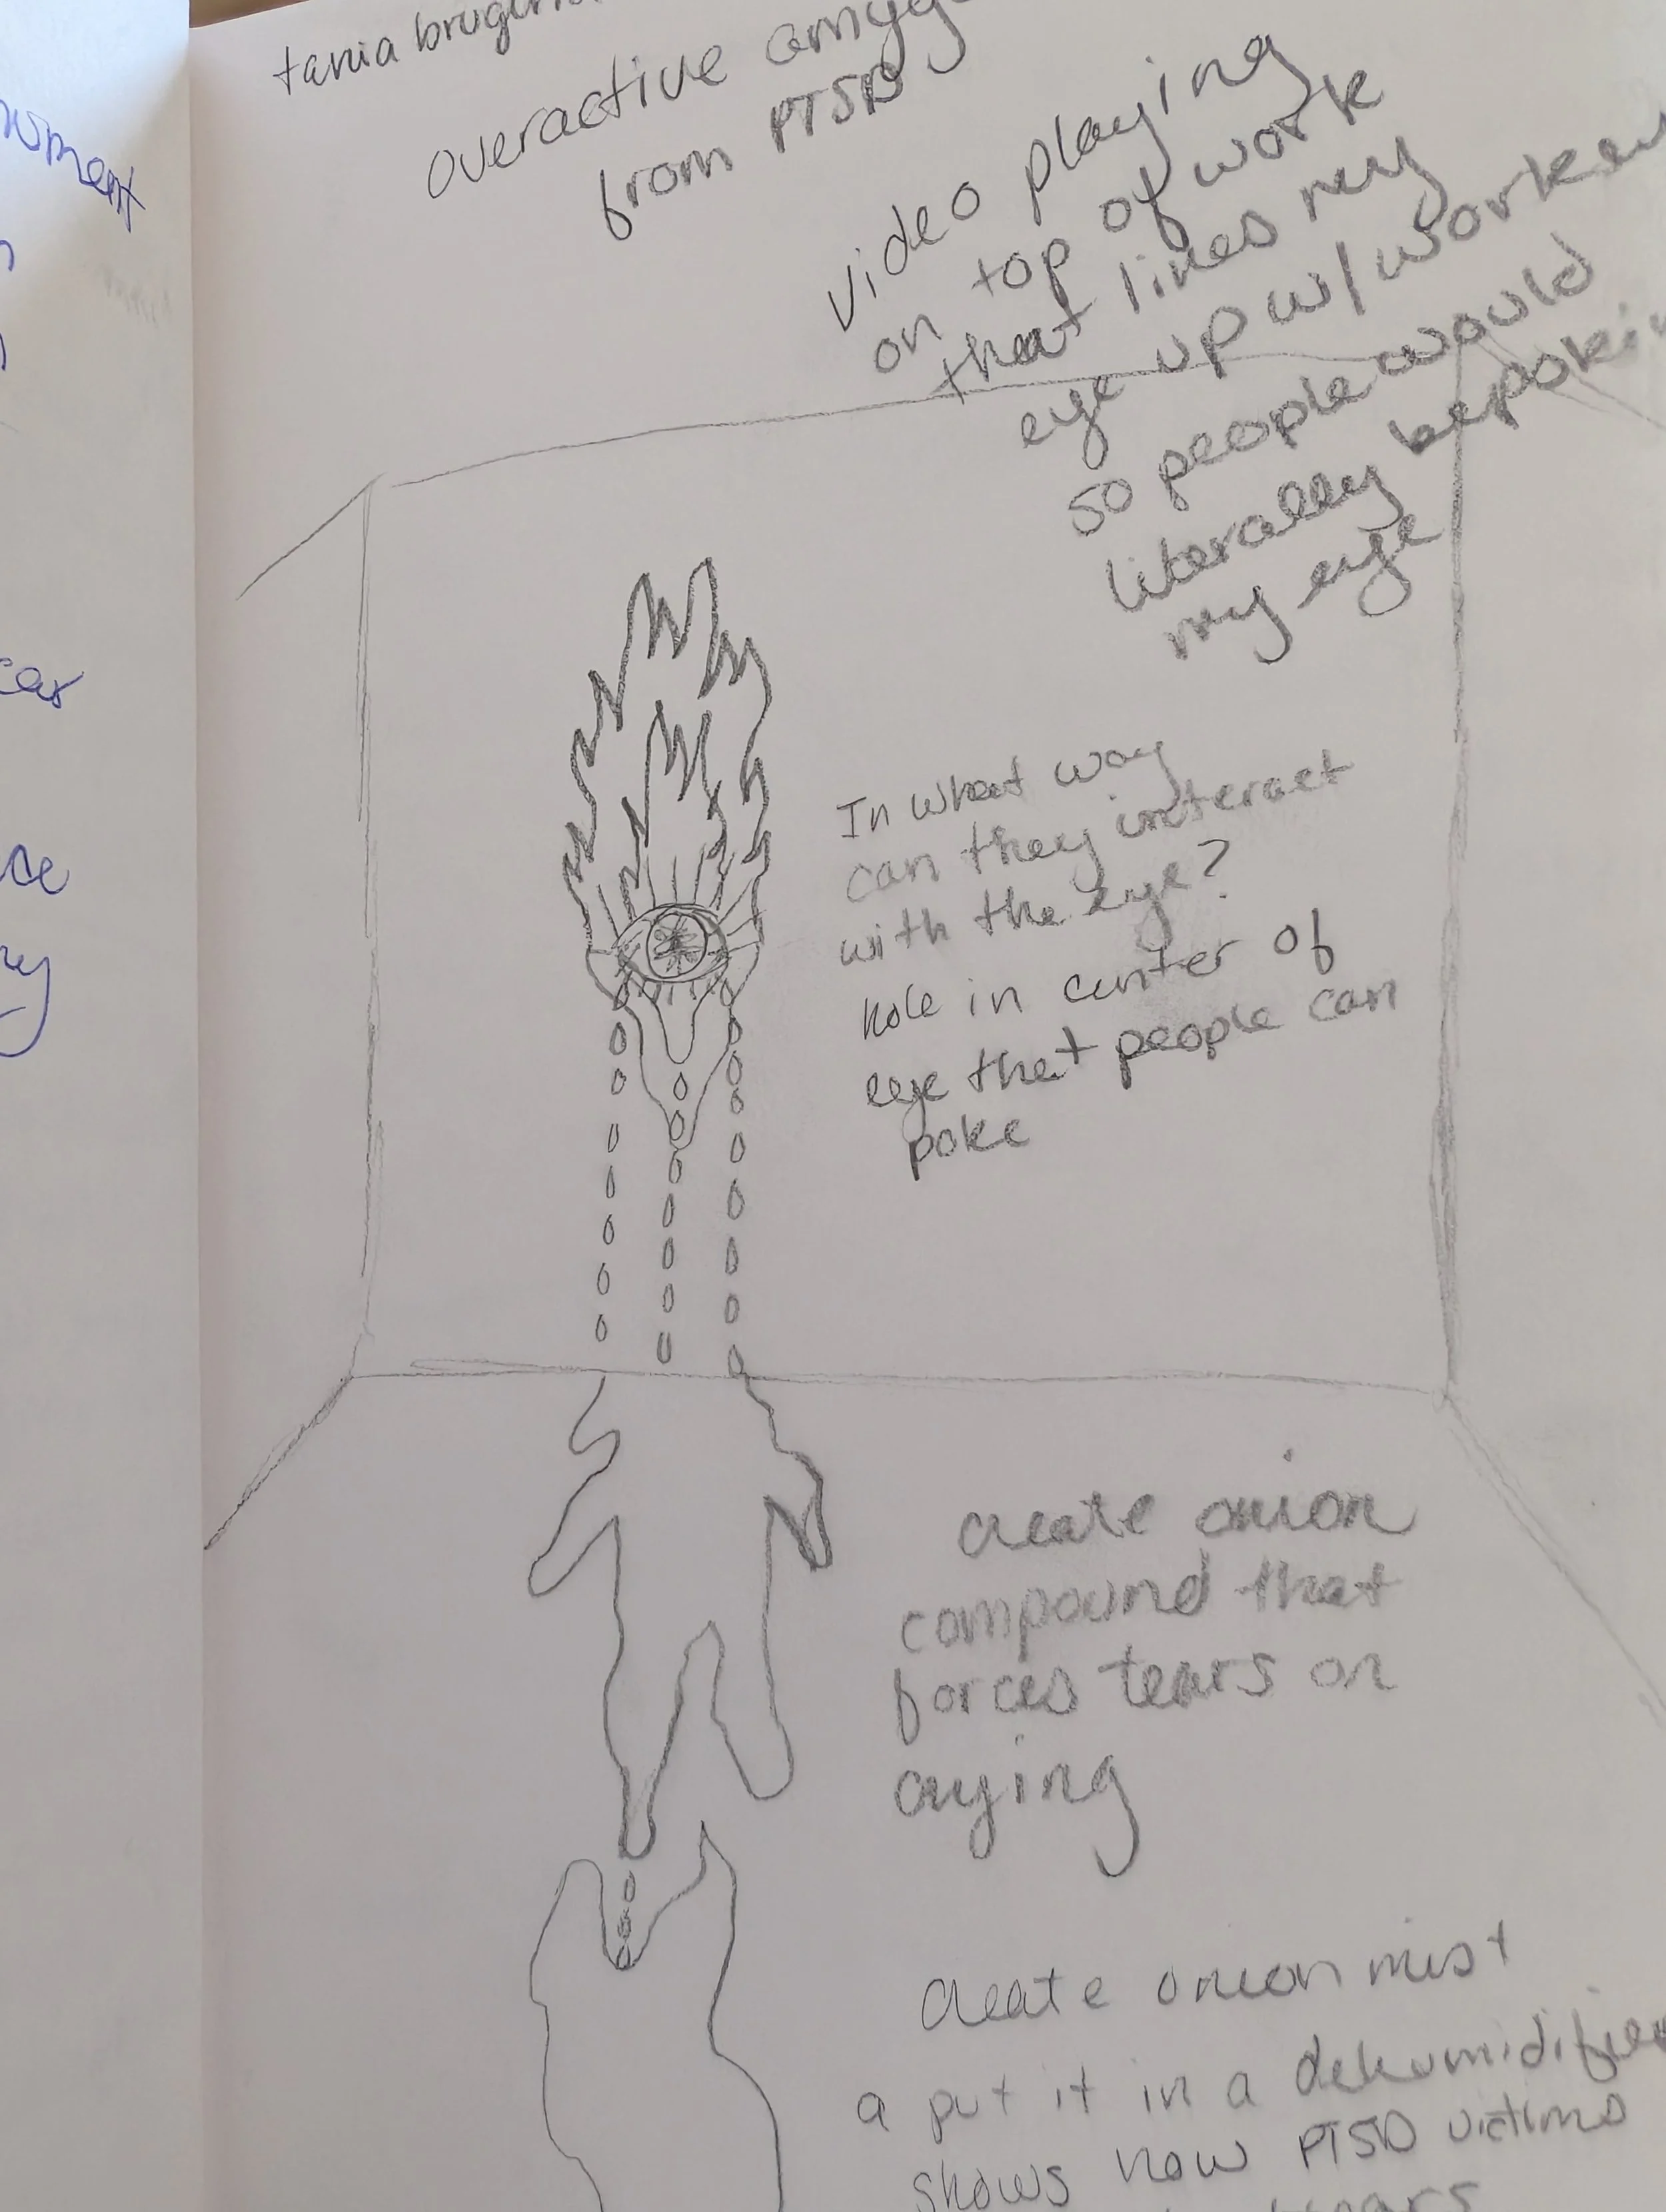 tania bruger
overactive amyg
from PTSD
video playing
on top of work
that lines my
eye up w/ worken
so people would
literally be poki
my eye
In what way
can they interact
with the eye?
hole in center of
eye that people can
poke
create onion
compound that
forces tears or
crying
create onion mist
a put it in a dehumidifier
shows how PTSD victims
wment
ear
ce
ry